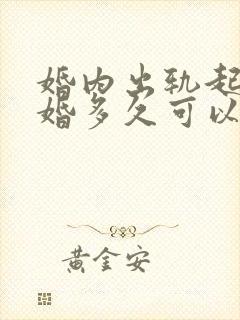 婚内出轨起
婚多久可以
黄金安